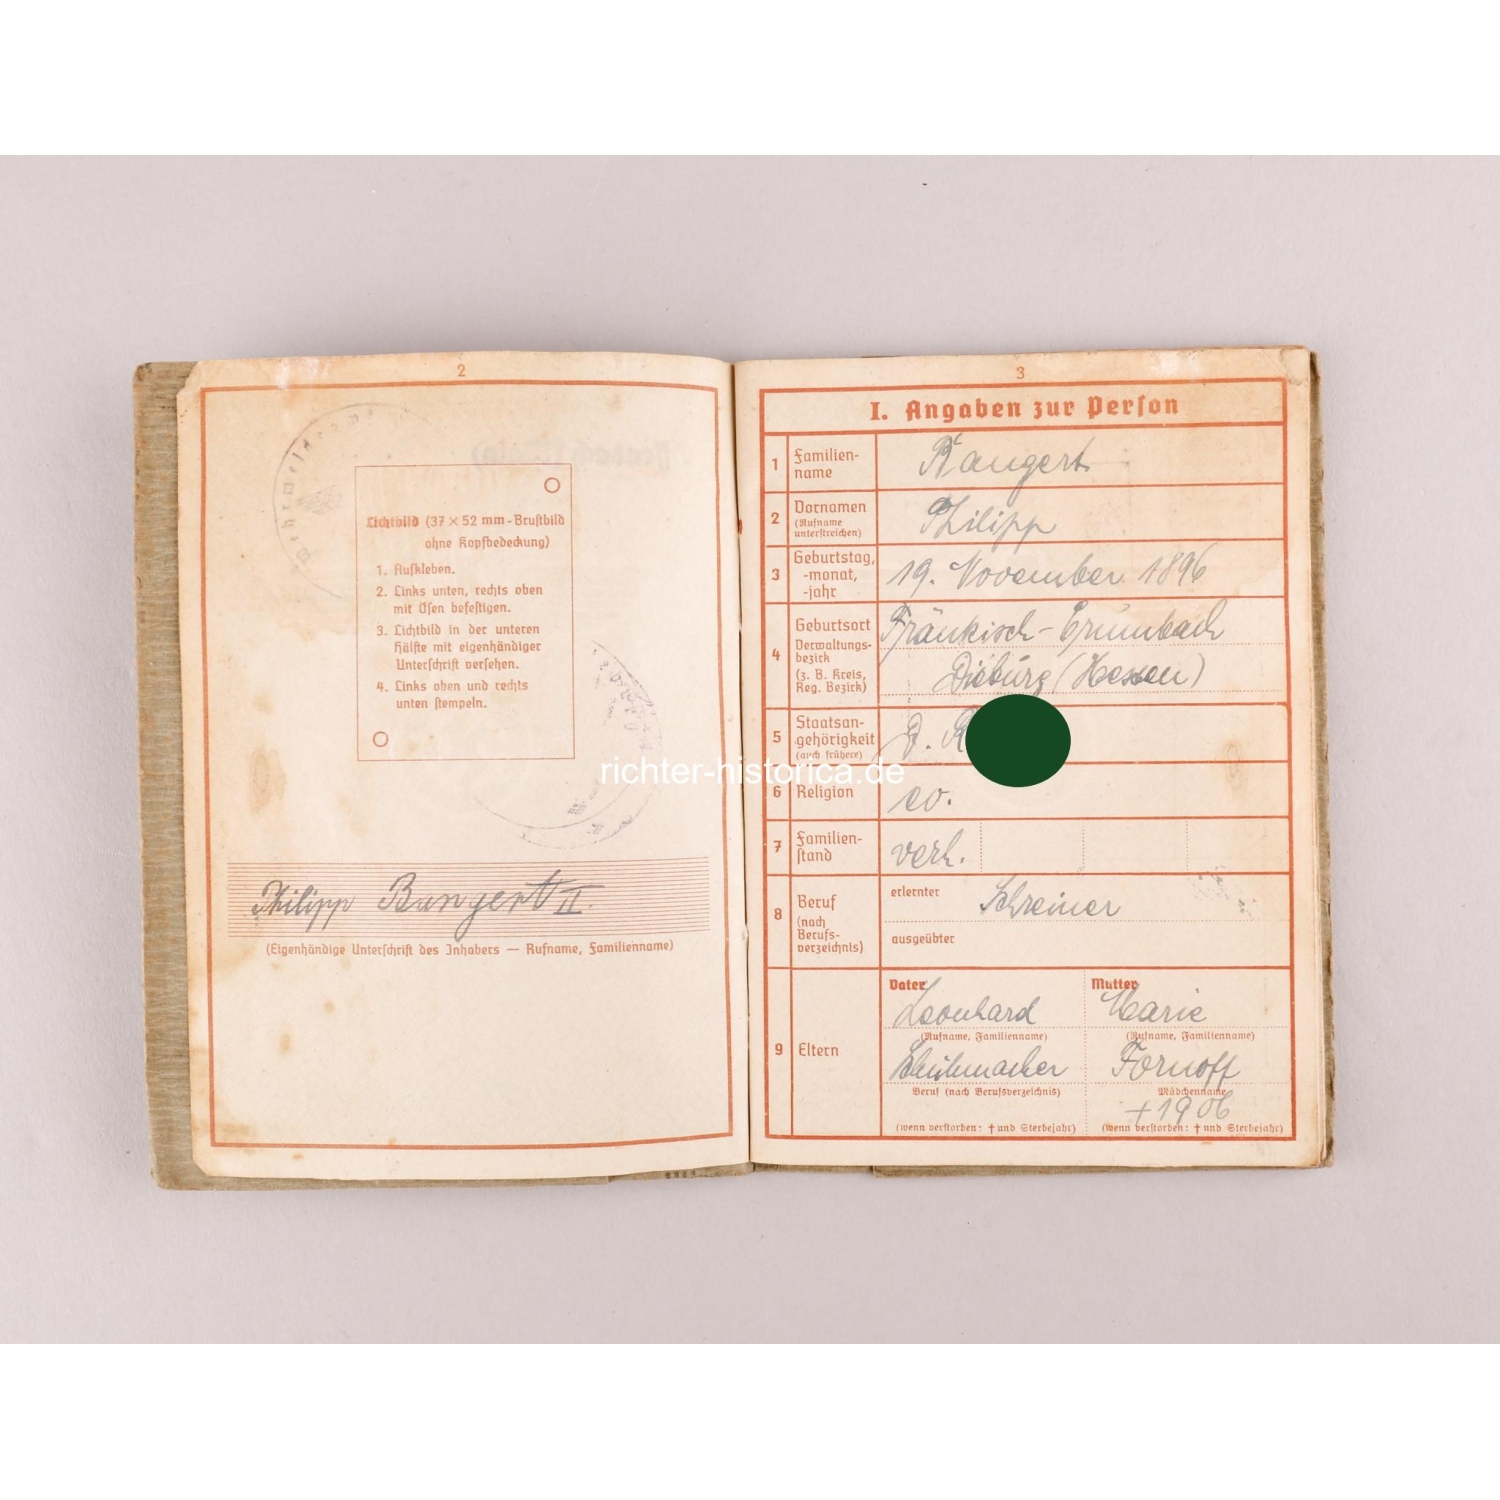 2
Wehrmeldeamt
Lichtbild (37 × 52 mm - Brustbild
ohne Kopfbedeckung)
1. Aufkleben.
2. Links unten, rechts oben
mit Ösen befestigen.
3. Lichtbild in der unteren
Hälfte mit eigenhändiger
Unterschrift versehen.
4. Links oben und rechts
unten stempeln.
Philipp Bangert II.
(Eigenhändige Unterschrift des Inhabers — Rufname, Familienname)
3
I. Angaben zur Person
1 Familien-
name
Bangert
2 Vornamen
(Rufname
unterstreichen)
Philipp
3 Geburtstag,
-monat,
-jahr
19. November 1896
4 Geburtsort
Verwaltungs-
bezirk
(z. B. Kreis,
Reg. Bezirk)
Fränkisch-Crumbach
Dieburg (Hessen)
5 Staatsan-
gehörigkeit
(auch frühere)
D. R
6 Religion
ev.
7 Familien-
stand
verh.
8 Beruf
(nach
Berufs-
verzeichnis)
erlernter
Schreiner
ausgeübter
9 Eltern
Vater
Leonhard
(Rufname, Familienname)
Schuhmacher
Beruf (nach Berufsverzeichnis)
(wenn verstorben: † und Sterbejahr)
Mutter
Marie
(Rufname, Familienname)
Fornoff
Mädchenname
+ 1906
(wenn verstorben: † und Sterbejahr)
richter-historica.de